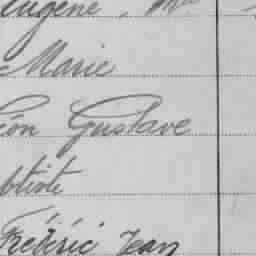 Eugène, Mle
Marie
Léon Gustave
btiste
Frédéric Jean